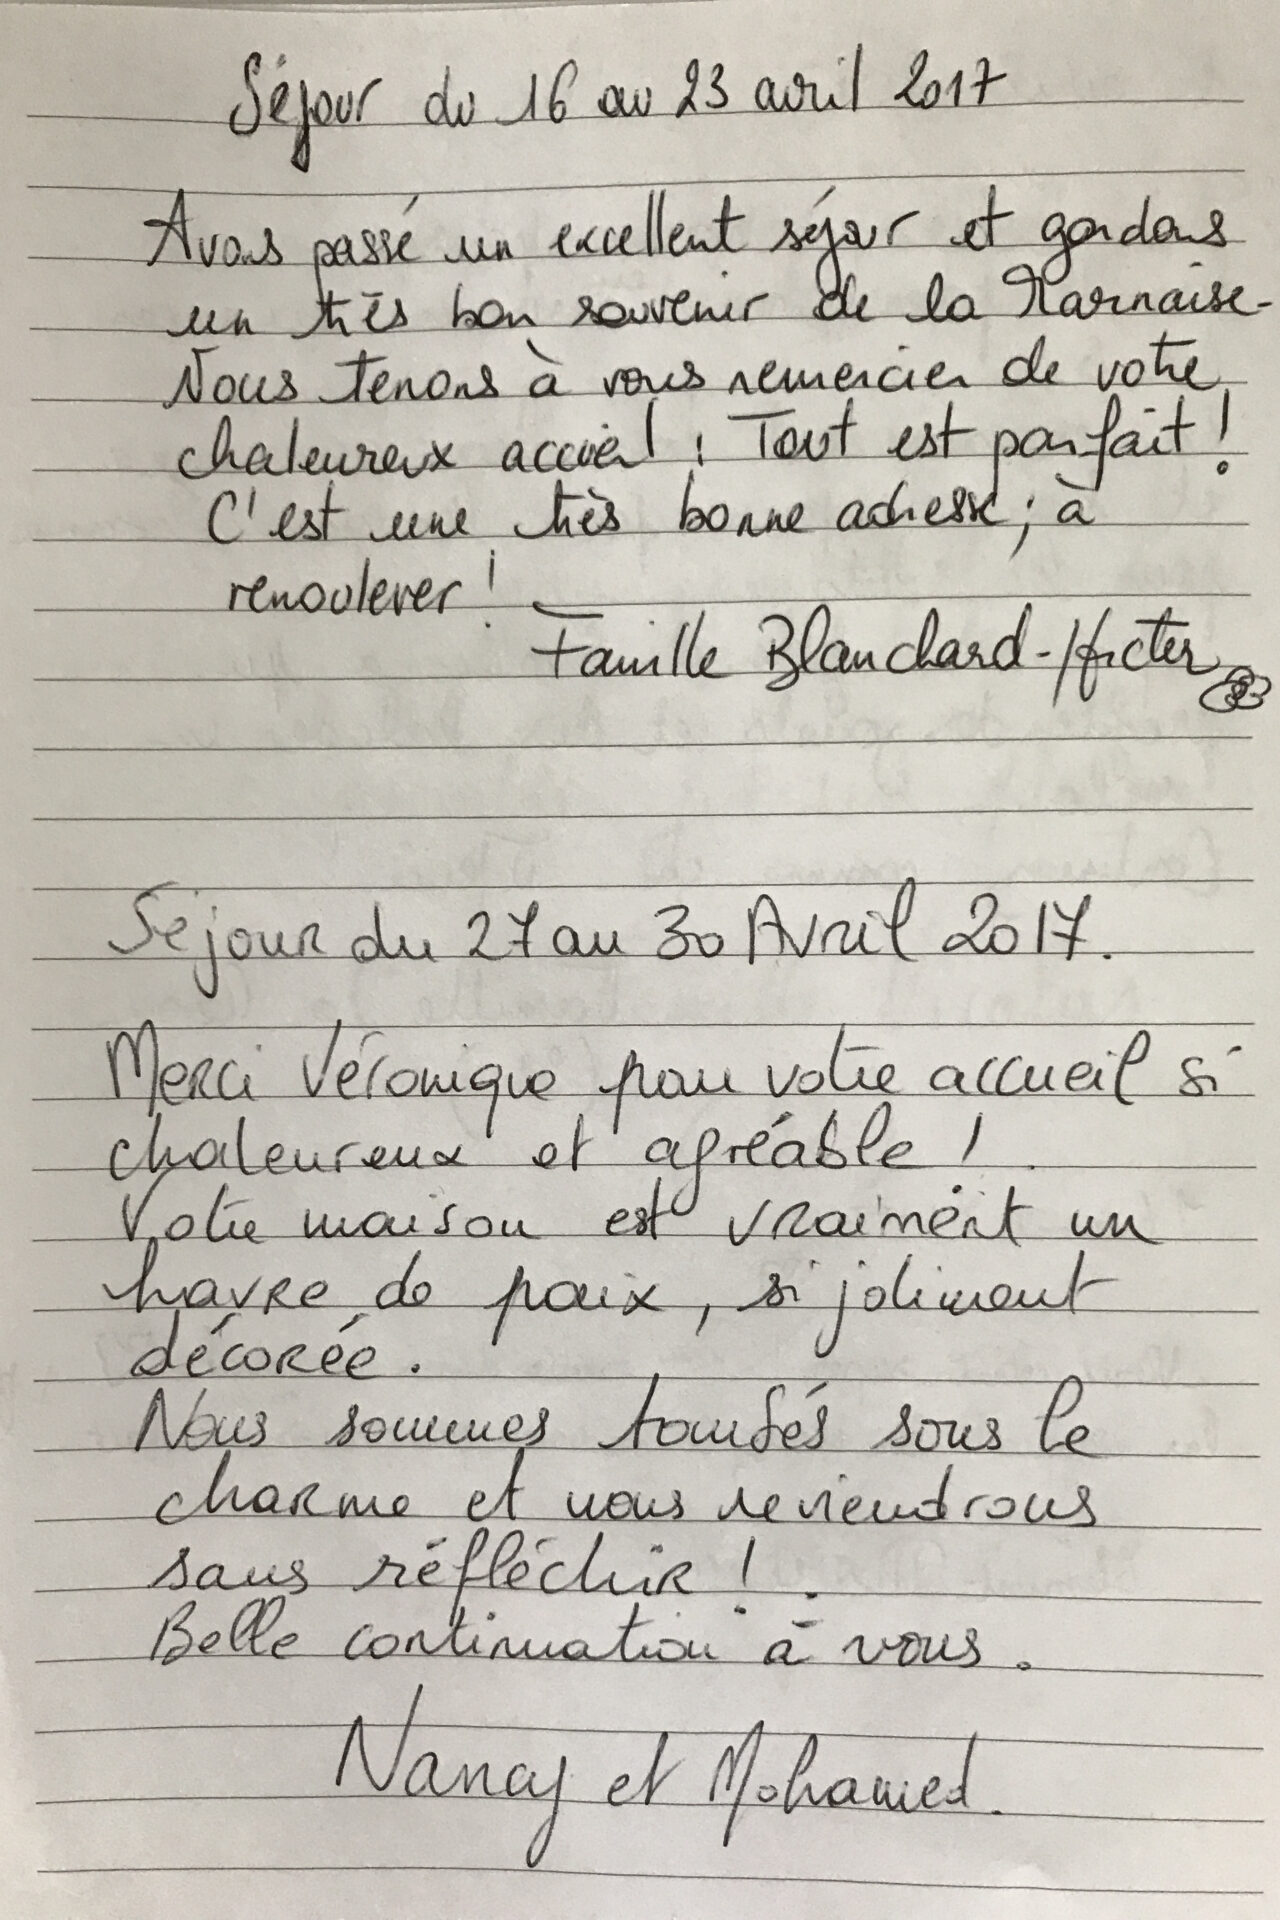 Séjour du 16 au 23 avril 2017
Avons passé un excellent séjour et gardons
un très bon souvenir de la Marnaise.
Nous tenons à vous remercier de votre
chaleureux accueil ! Tout est parfait !
C'est une très bonne adresse ; à
renouler !
Famille Blanchard-
Séjour du 27 au 30 Avril 2017.
Merci Véronique pour votre accueil si
chaleureux et agréable !
Votre maison est vraiment un
havre de paix, si joliment
décorée.
Nous sommes tombés sous le
charme et nous reviendrons
sans réfléchir !
Belle continuation à vous.
Nancy et Mohamed.